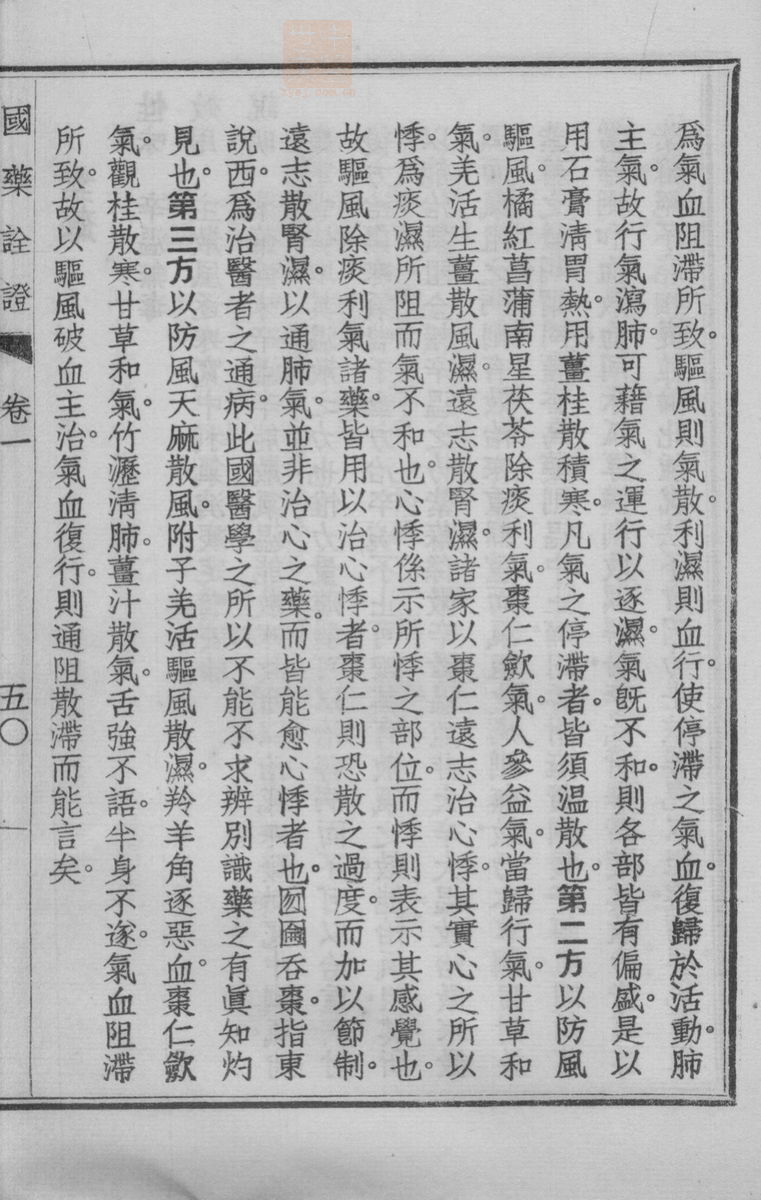 爲氣血阻滯所致。驅風則氣散。利濕則血行。使停滯之氣血。復歸於活動。肺
主氣。故行氣瀉肺。可藉氣之運行以逐濕。氣旣不和。則各部皆有偏盛。是以
用石膏清胃熱。用薑桂散積寒。凡氣之停滯者。皆須温散也。第二方以防風
驅風。橘紅菖蒲南星茯苓除痰利氣。棗仁斂氣。人參益氣。當歸行氣。甘草和
氣。羌活生薑散風濕。遠志散腎濕。諸家以棗仁遠志治心悸。其實心之所以
悸。爲痰濕所阻而氣不和也。心悸係示所悸之部位。而悸則表示其感覺也。
故驅風除痰利氣諸藥。皆用以治心悸者。棗仁則恐散之過度。而加以節制。
遠志散腎濕。以通肺氣。並非治心之藥。而皆能愈心悸者也。囫圇呑棗。指東
說西。爲治醫者之通病。此國醫學之所以不能不求辨別識藥之有眞知灼
見也。第三方以防風天麻散風。附子羌活驅風散濕。羚羊角逐惡血。棗仁斂
氣。觀桂散寒。甘草和氣。竹瀝淸肺。薑汁散氣。舌強不語。半身不遂。氣血阻滯
所致。故以驅風破血主治。氣血復行。則通阻散滯而能言矣。
國藥詮證 卷一 五〇